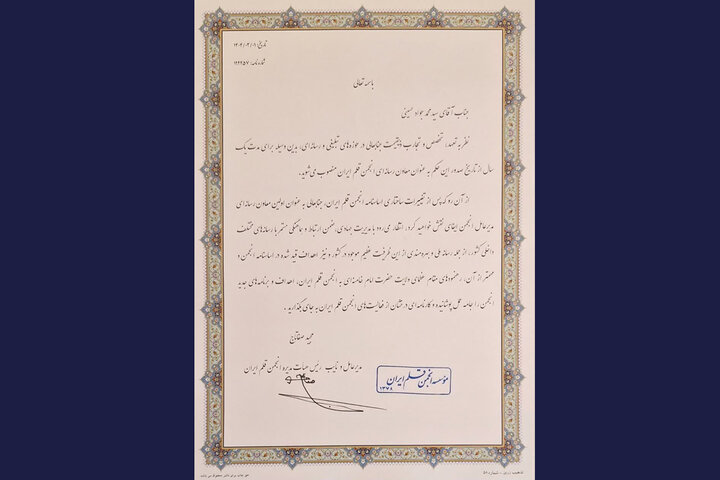 تاریخ: ۱۴۰۲/۰۲/۰۶
شماره نامه: ۱۲۲۴۵۷
باسمه تعالی
جناب آقای سید محمد جواد حسینی
نظر به تعهد، تخصص و تجارب ذیقیمت جنابعالی در حوزه‌های تبلیغی و رسانه‌ای، بدین وسیله برای مدت یک
سال از تاریخ صدور این حکم به عنوان معاون رسانه‌ای انجمن قلم ایران منصوب می‌شوید.
از آن رو که پس از تغییرات ساختاری اساسنامه انجمن قلم ایران، جنابعالی به عنوان اولین معاون رسانه‌ای
مدیرعامل انجمن ایفای نقش خواهید کرد، انتظار می‌رود با مدیریت جهادی، ضمن ارتباط و هماهنگی مستمر با رسانه‌های مختلف
داخلی کشور، از جمله رسانه ملی و بهره‌مندی از این ظرفیت عظیم موجود در کشور و نیز اهداف قید شده در اساسنامه انجمن و
مهمتر از آن، رهنمودهای مقام عظمای ولایت حضرت امام خامنه‌ای به انجمن قلم ایران، اهداف و برنامه‌های جدید
انجمن را جامه عمل پوشانیده و کارنامه‌ای درخشان از فعالیت‌های انجمن قلم ایران به جای بگذارید.
مجید صفاتاج
مدیرعامل و نایب رئیس هیات مدیره انجمن قلم ایران
مؤسسه انجمن قلم ایران
۱۳۷۸